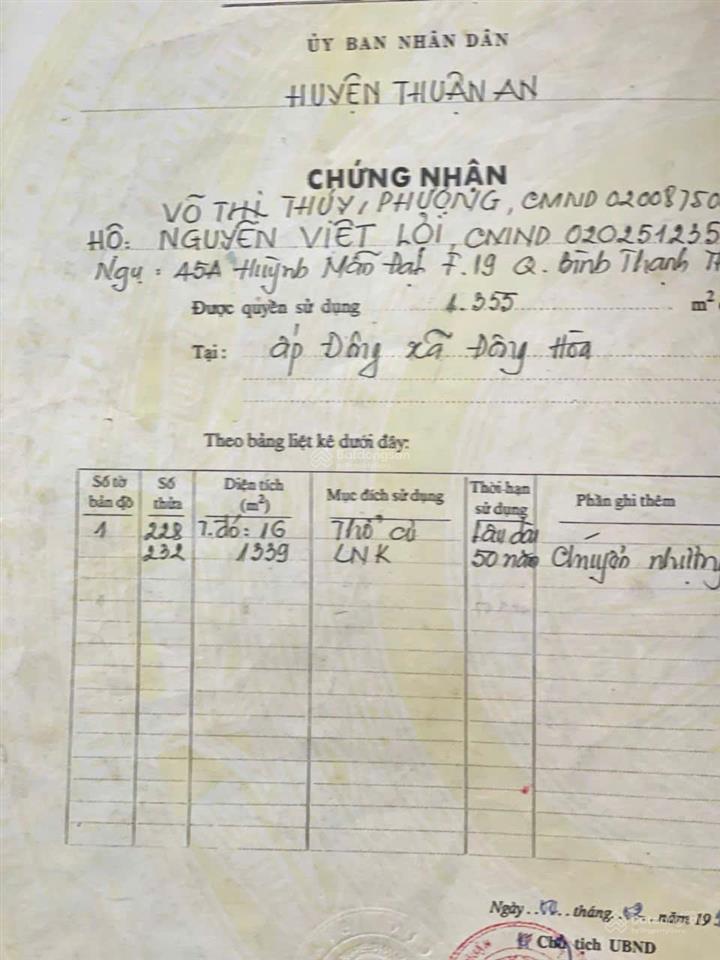 ỦY BAN NHÂN DÂN
HUYỆN THUẬN AN
CHỨNG NHẬN
VÕ THỊ THÚY PHƯỢNG, CMND 02008750
HỘ: NGUYỄN VIẾT LỢI, CMND 020251235
Ngụ: 45A Huỳnh Mẫn Đạt F.19 Q. Bình Thạnh
Được quyền sử dụng 1.355 m²
Tại: ấp Đông xã Đông Hòa
Theo bảng liệt kê dưới đây:
Số tờ bản đồ Số thửa Diện tích (m²) Mục đích sử dụng Thời hạn sử dụng Phần ghi thêm
1 228 T.đó: 16 Thổ cư Lâu dài
232 1339 LNK 50 năm Chuyển nhượng
Batdongsan
Ngày tháng năm 19
Chủ tịch UBND